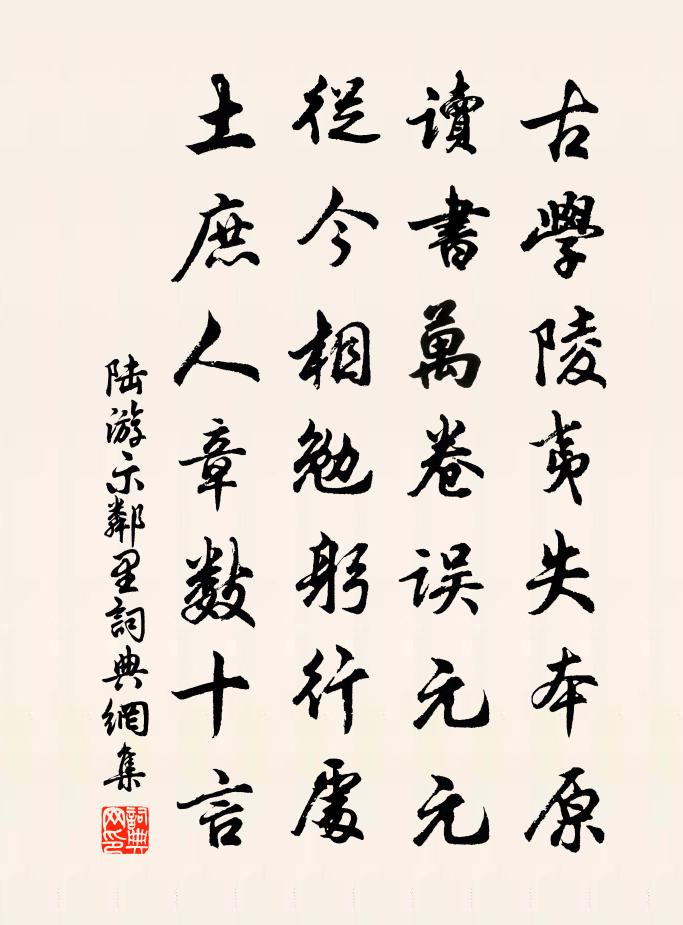 古學陵夷失本原
讀書萬卷误元元
從今相勉躬行處
士庶人章數十言
陆游示鄰里詞典網集
詞典網印